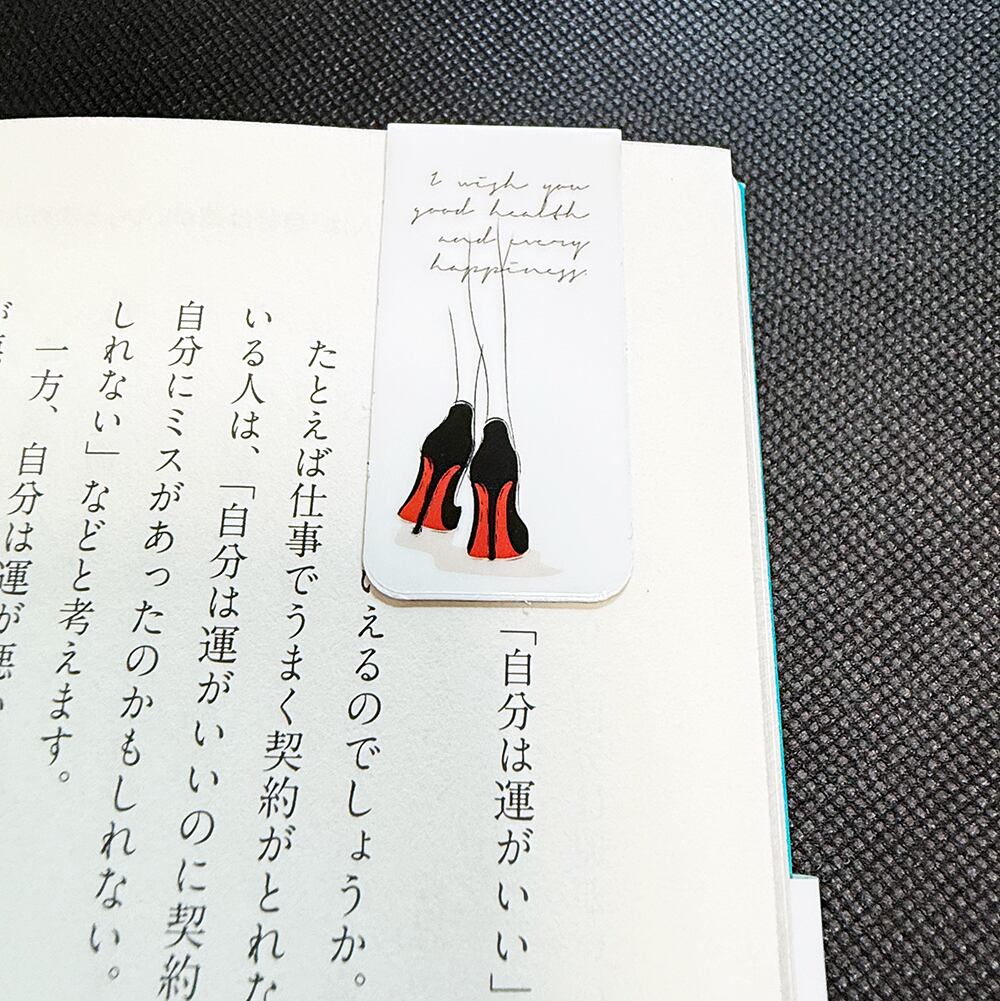 I wish you
good health
and every
happiness.
「自分は運がいい」
えるのでしょうか。
たとえば仕事でうまく契約がとれな
いる人は、「自分は運がいいのに契約
自分にミスがあったのかもしれない。
しれない」などと考えます。
一方、自分は運が悪い